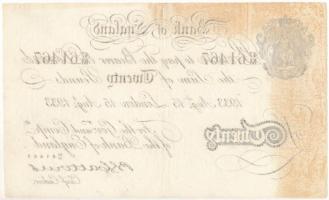 Bank of England
61467 to pay the Bearer 61467
the Sum of Twenty Pounds
1933 Aug. 15 London 15 Aug. 1933
For the Gov. and Comp.a
of the Bank of England
Twenty
Chief Cashier